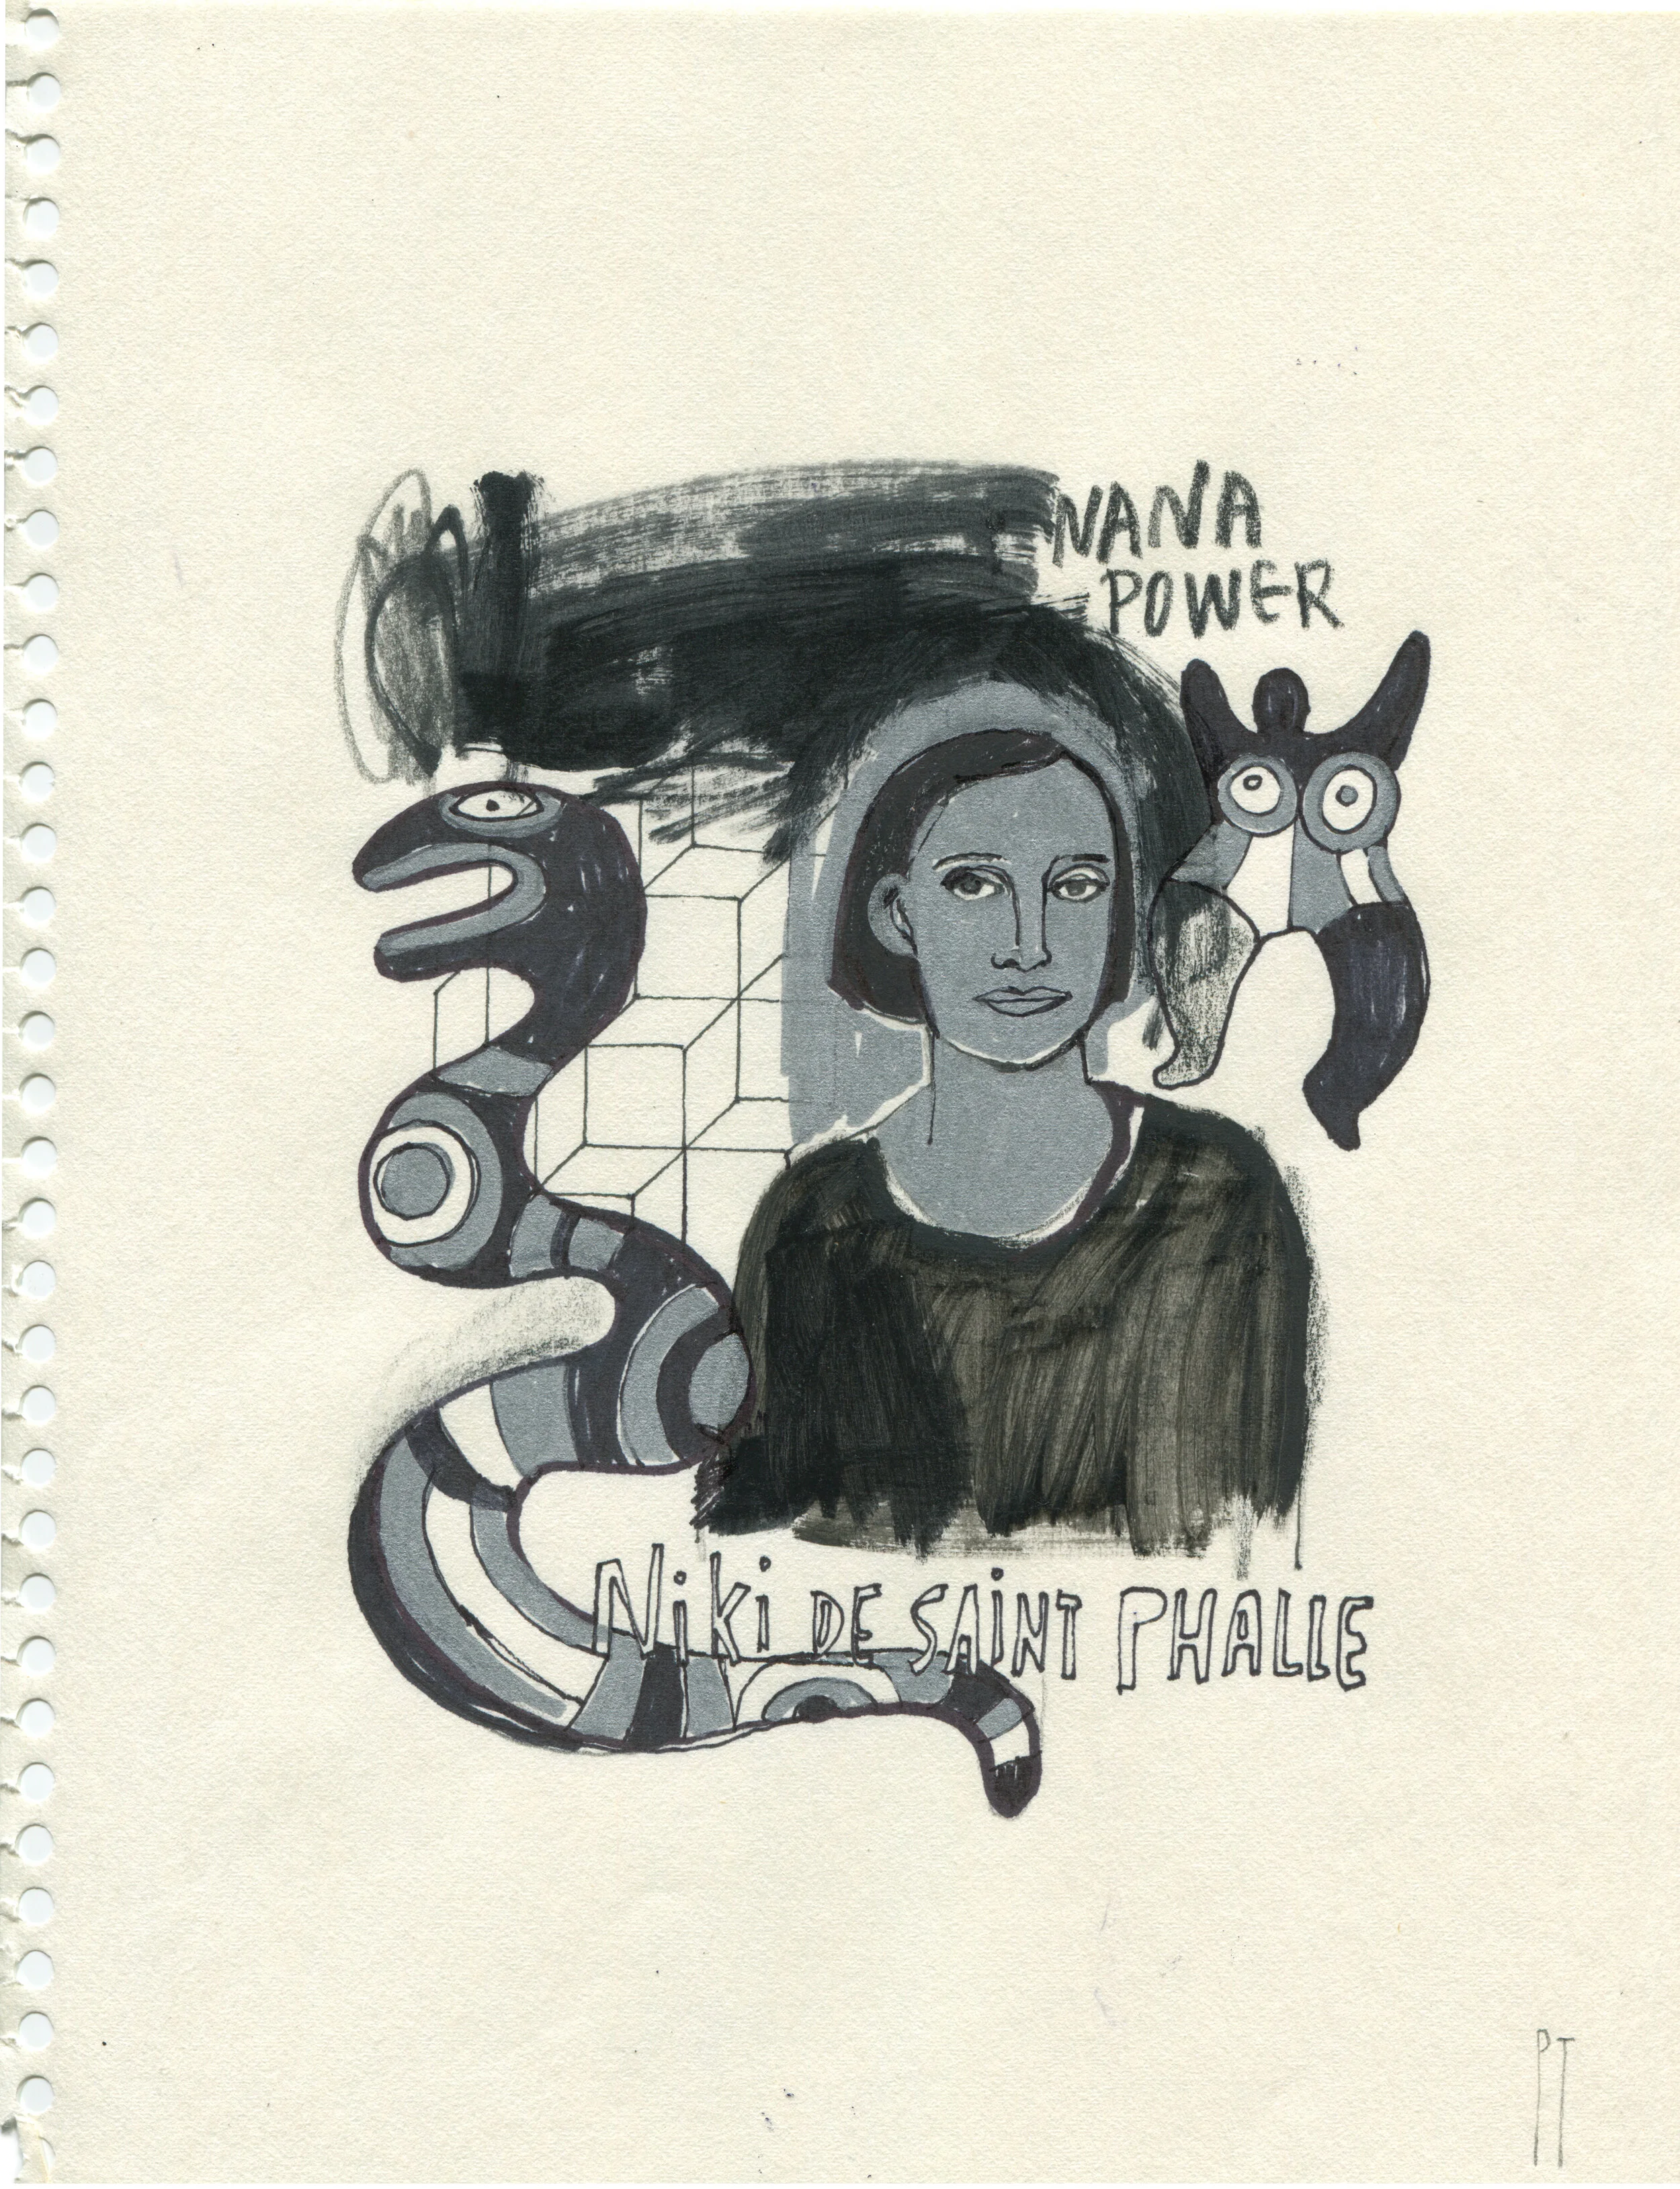 NANA
POWER
Niki DE SAiNT PHALLE
PT